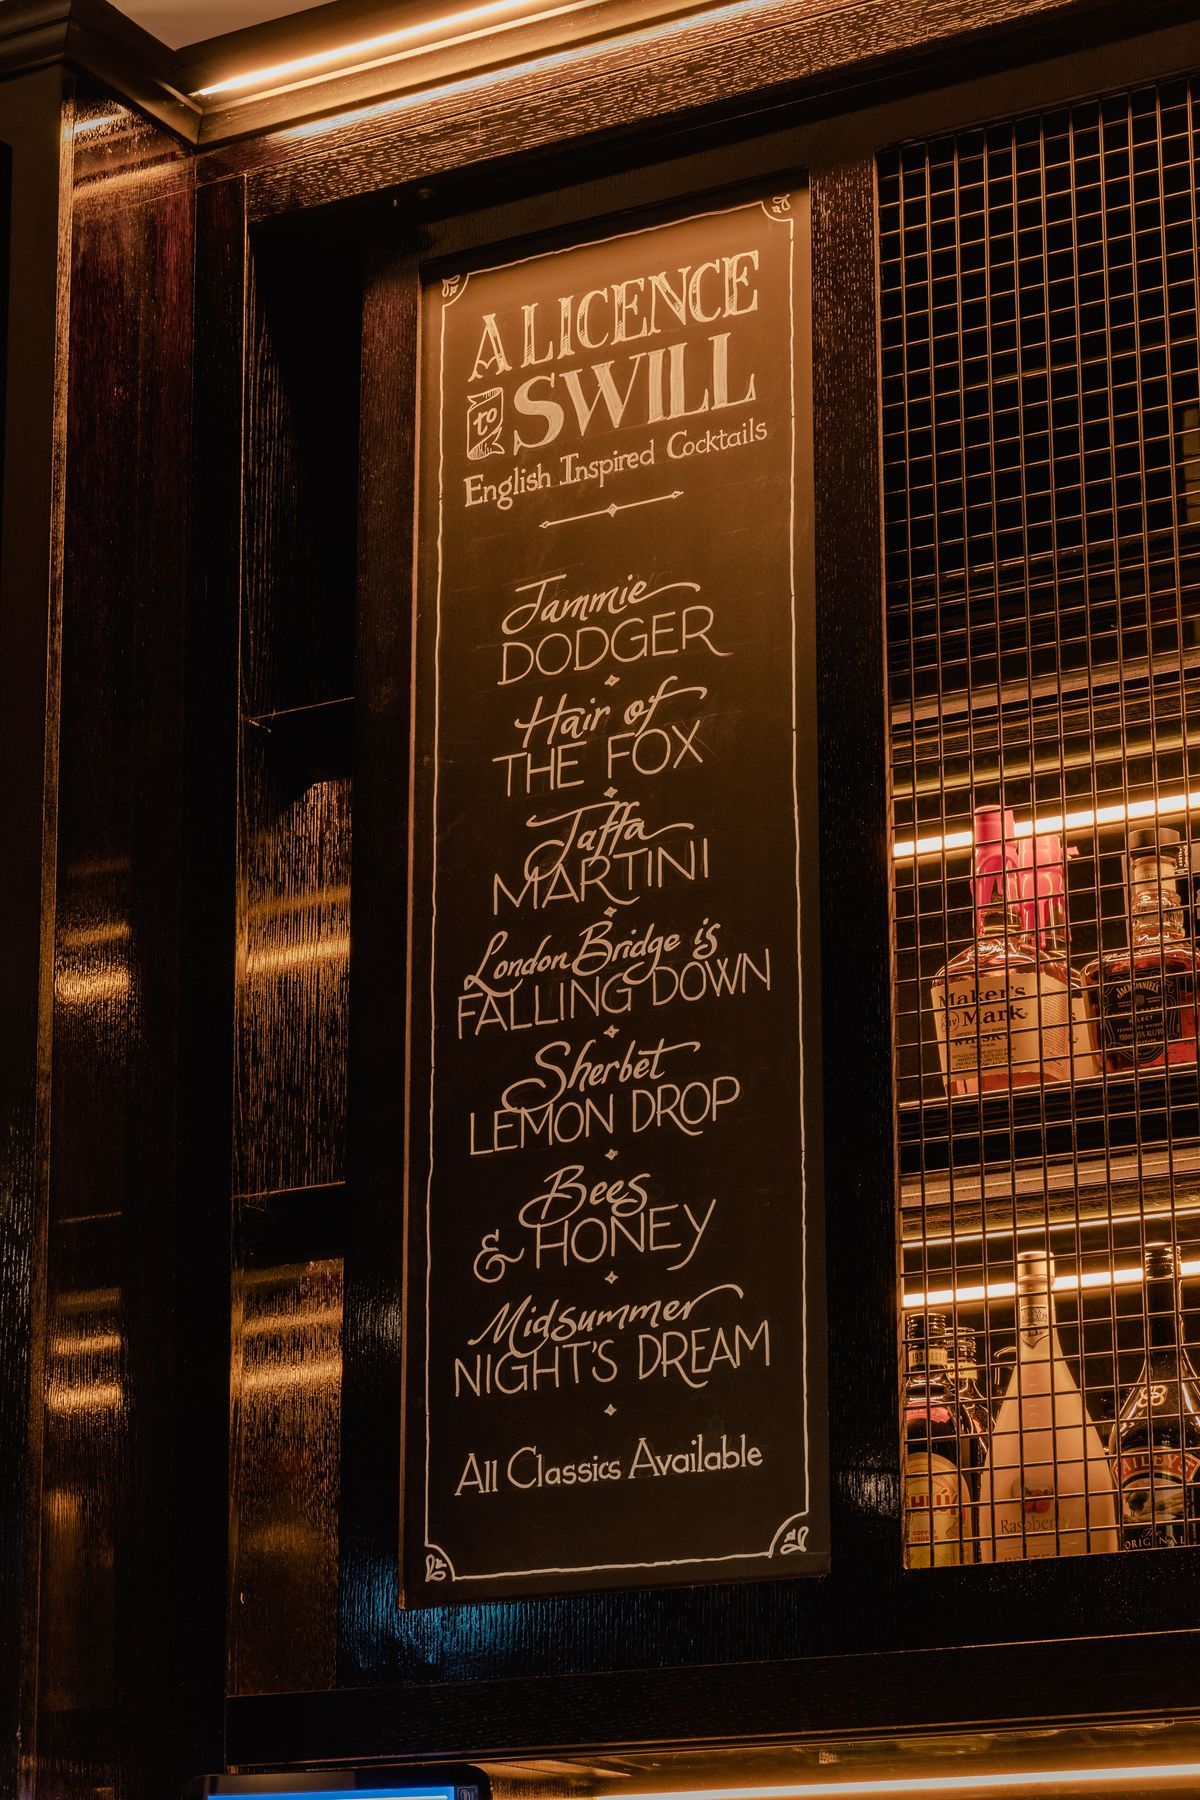 A LICENCE
to SWILL
English Inspired Cocktails
Jammie
DODGER
Hair of
THE FOX
Jaffa
MARTINI
London Bridge is
FALLING DOWN
Sherbet
LEMON DROP
Bees
& HONEY
Midsummer
NIGHT'S DREAM
All Classics Available
Maker's
Mark
WHISKY
JACK DANIEL'S
SELECT
Raspberry
BAILEYS
ORIGINAL
COFFEE
LIQUEUR